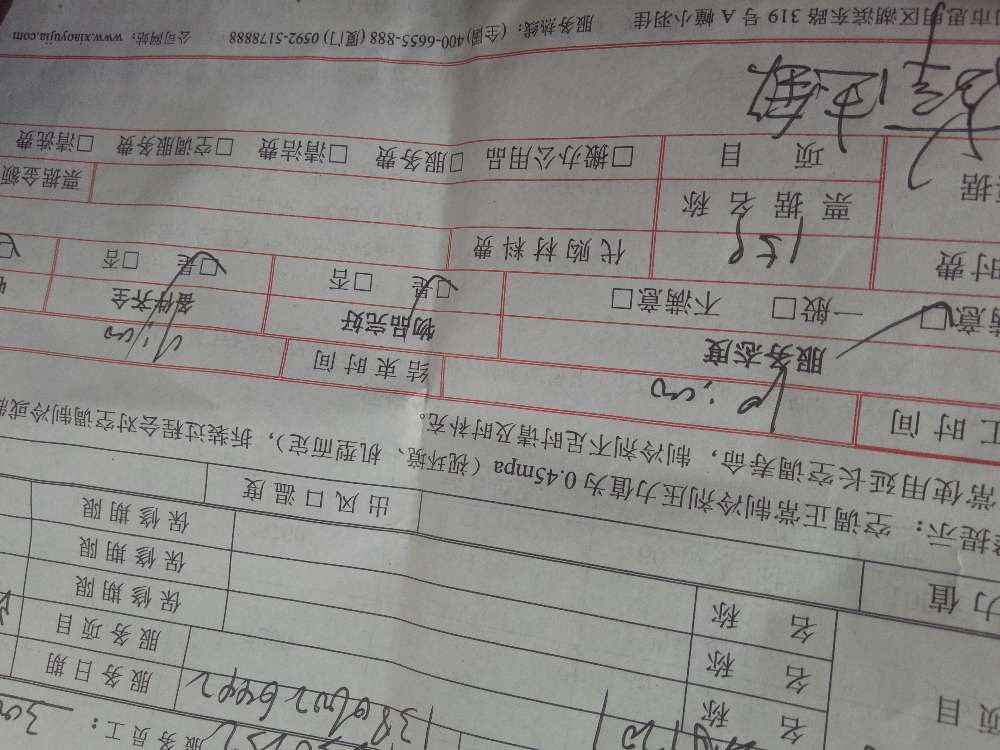 服务员工：
服务日期
服务项目
项目 名称 保修期限
名称 保修期限
名称 保修期限
力值 出风口温度
提示：空调正常制冷剂压力值为0.45mpa（视环境、机型而定），拆装过程会对空调制冷或制
常使用延长空调寿命，制冷剂不足时请及时补充。
工时间 10:00 结束时间 11:00
服务态度 物品完好 备件齐全
满意□ 一般□ 不满意□ □是 □否 □是 □否
时费 158 代购材料费
据 票据名称 票据金额
项目 □搬办公用品 □服务费 □清洁费 □空调服务费 □清洗费
市思明区湖滨东路319号A幢小羽佳 服务热线：(全国)400-6655-888 (厦门) 0592-5178888 公司网站：www.xiaoyujia.com